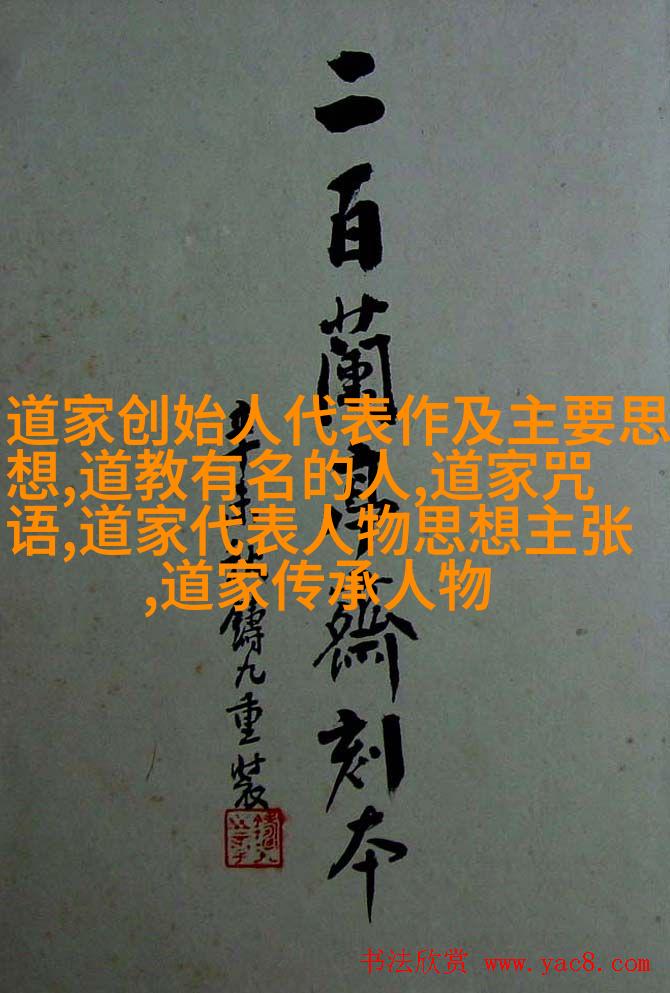 二百蘭亭齋刻本
鑄九重裝
道家创始人代表作及主要思
想,道教有名的人,道家咒
语,道家代表人物思想主张
,道家传承人物
书法欣赏 www.yac8.com